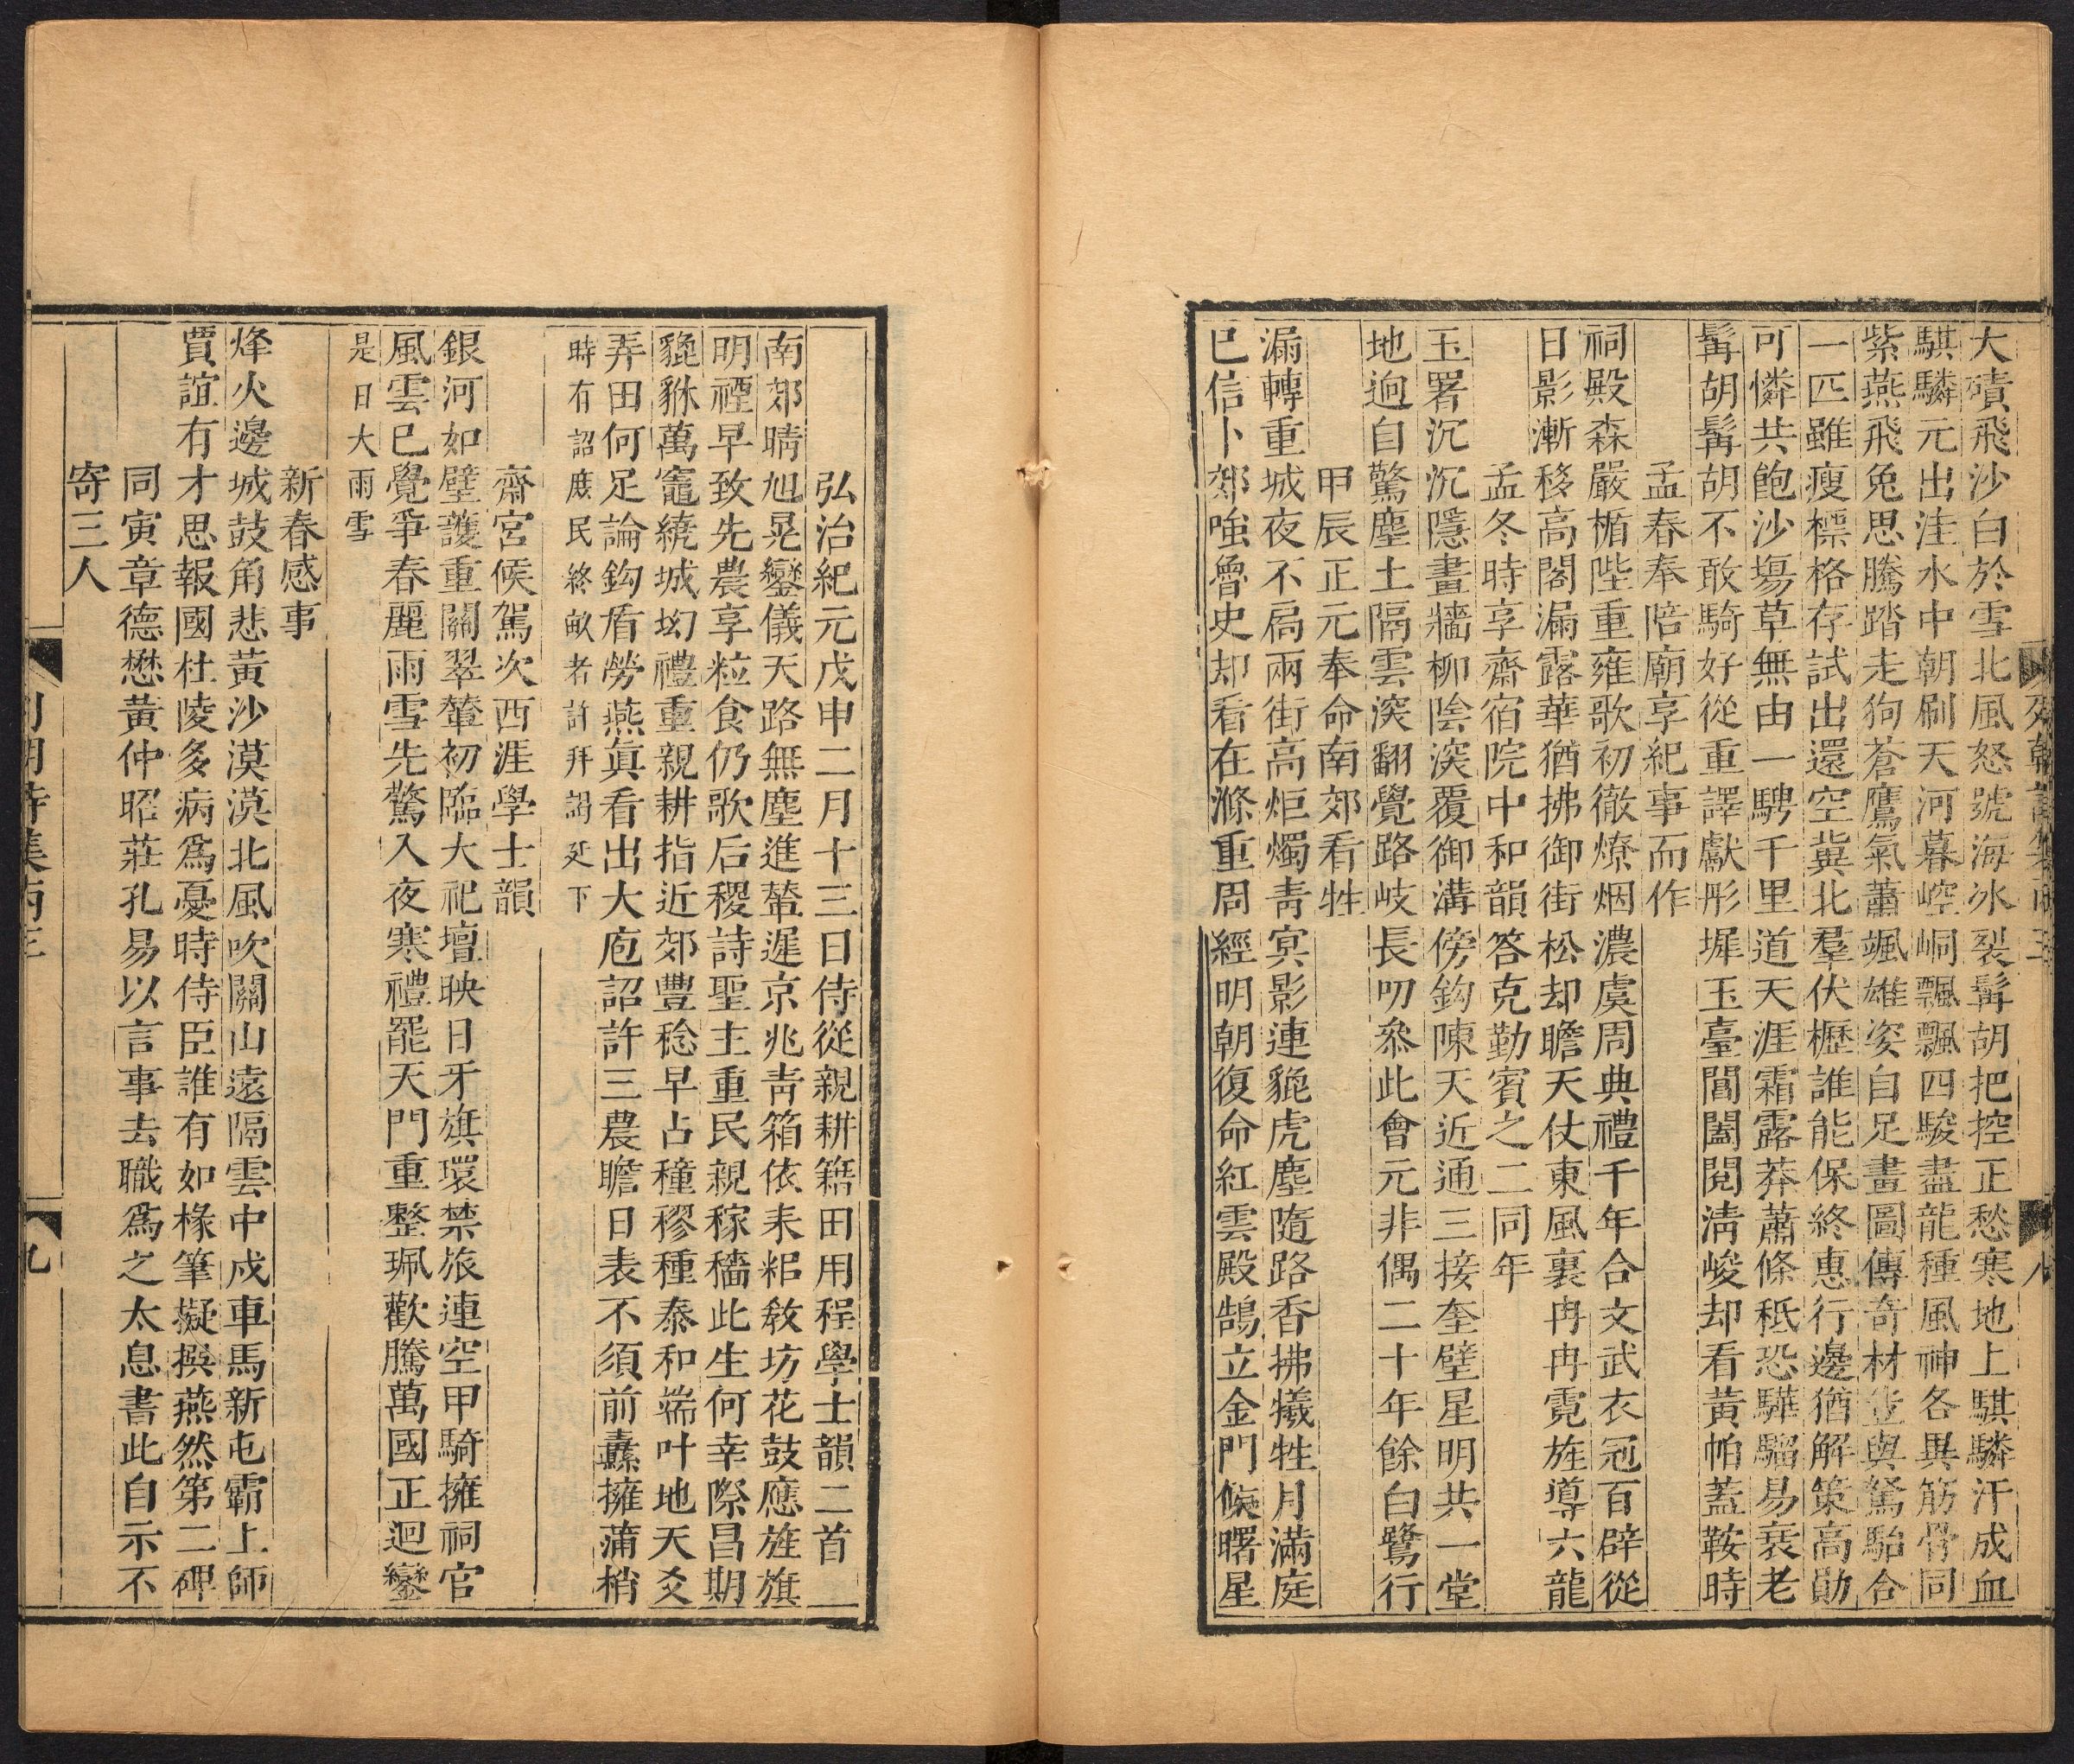 大磧飛沙白於雪北風怒號海冰裂髯胡把控正愁寒地上騏驎汗成血
騏驎元出洼水中朝刷天河暮崆峒飄飄四駿盡龍種風神各異筋骨同
紫燕飛兔思騰踏走狗蒼鷹氣蕭颯雄姿自足畫圖傳奇材豈與駑駘合
一匹雖瘦標格存試出還空冀北羣伏櫪誰能保終惠行邊猶解策高勛
可憐共飽沙塲草無由一騁千里道天涯霜露莽蕭條秪恐驊騮易衰老
髯胡髯胡不敢騎好從重譯獻彤墀玉臺閶闔閱淸峻却看黃帕蓋鞍時
孟春奉陪廟享紀事而作
祠殿森嚴楯陛重雍歌初徹燎烟濃虞周典禮千年合文武衣冠百辟從
日影漸移高閣漏露華猶拂御街松却瞻天仗東風裏冉冉霓旌導六龍
孟冬時享齋宿院中和韻答克勤賓之二同年
玉署沉沉隱畫牆柳陰深覆御溝傍鈎陳天近通三接奎壁星明共一堂
地逈自驚塵土隔雲深翻覺路岐長叨叅此會元非偶二十年餘白鷺行
甲辰正元奉命南郊看牲
漏轉重城夜不扃兩街高炬燭靑冥影連貔虎塵隨路香拂犧牲月滿庭
已信卜郊嗤魯史却看在滌重周經明朝復命紅雲殿鵠立金門候曙星
八
弘治紀元戊申二月十三日侍從親耕籍田用程學士韻二首
南郊晴旭晃鑾儀天路無塵進輦遲京兆靑箱依耒耜敎坊花鼓應旌旗
明禋早致先農享粒食仍歌后稷詩聖主重民親稼穡此生何幸際昌期
貔貅萬竈繞城㘭禮重親耕指近郊豐稔早占穜穋種泰和端叶地天爻
弄田何足論鈎盾勞燕眞看出大庖詔許三農瞻日表不須前纛擁蒲梢
時有詔庶民終畝者許拜謁㢟下
齋宮候駕次西涯學士韻
銀河如璧護重關翠輦初臨大祀壇映日牙旗環禁旅連空甲騎擁祠官
風雲已覺爭春麗雨雪先驚入夜寒禮罷天門重整珮歡騰萬國正迴鑾
是日大雨雪
新春感事
烽火邊城鼓角悲黃沙漠漠北風吹關山遠隔雲中戍車馬新屯霸上師
賈誼有才思報國杜陵多病爲憂時侍臣誰有如椽筆擬撰燕然第二碑
同寅章德懋黃仲昭莊孔易以言事去職爲之太息書此自示不
寄三人
列朝詩集丙三
九